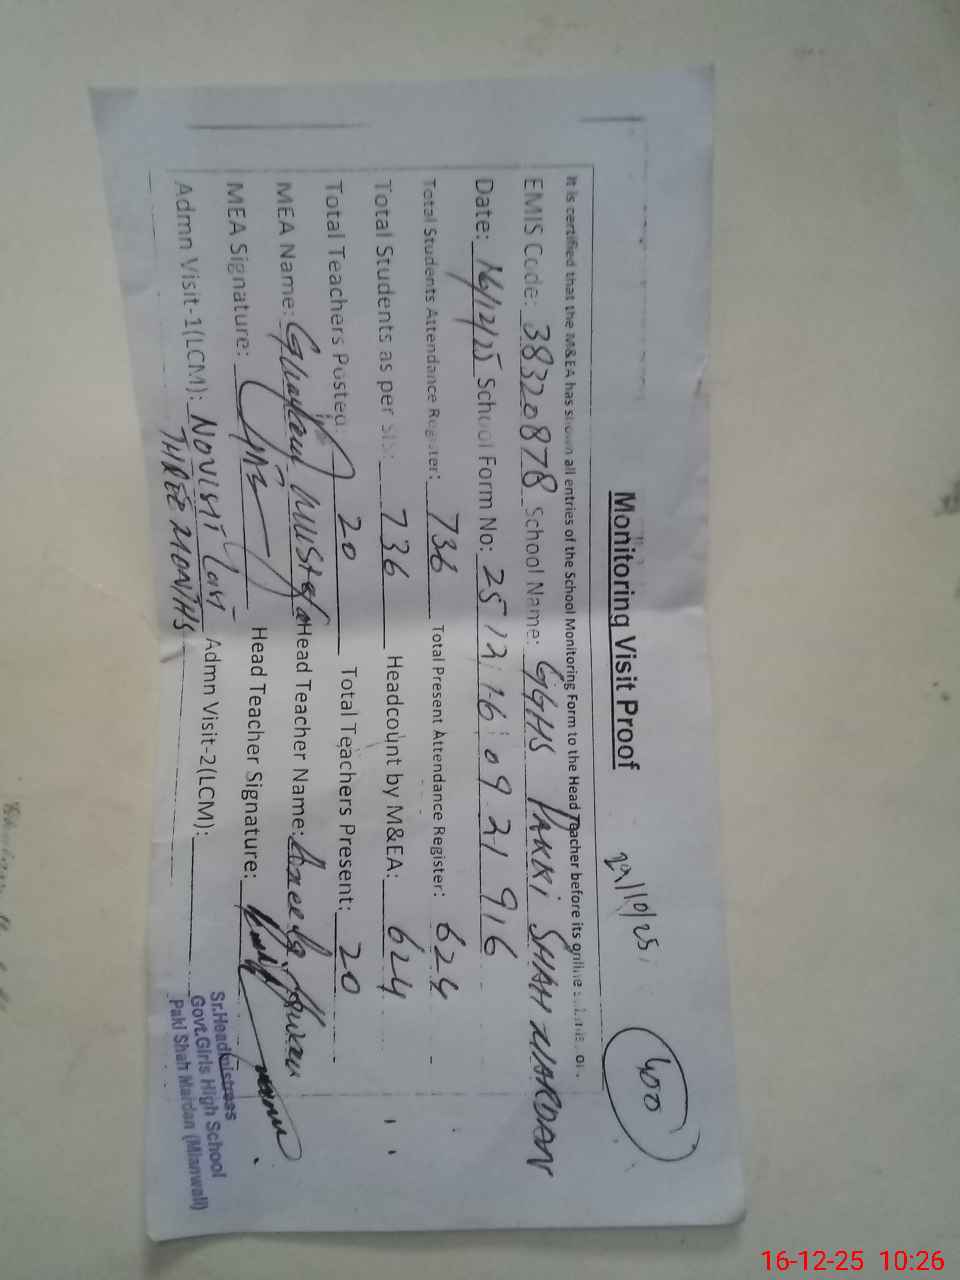 Monitoring Visit Proof
29/10/25
400
It is certified that the M&EA has shown all entries of the School Monitoring Form to the Head Teacher before its online
EMIS Code: 38320878 School Name: GGHS PAKKI SHAH MARDAN
Date: 16/12/25 School Form No: 25 12 16 09 21 916
Total Students Attendance Register: 736 Total Present Attendance Register: 624
Total Students as per SIS: 736 Headcount by M&EA: 624
Total Teachers Posted: 20 Total Teachers Present: 20
MEA Name: Ghulam Mustafa Head Teacher Name: Aneela
MEA Signature: Head Teacher Signature:
Admn Visit-1(LCM): NO VISIT LAST Admn Visit-2(LCM):
THREE MONTHS
Sr.Headmistress
Govt.Girls High School
Paki Shah Mardan (Mianwali)
16-12-25 10:26